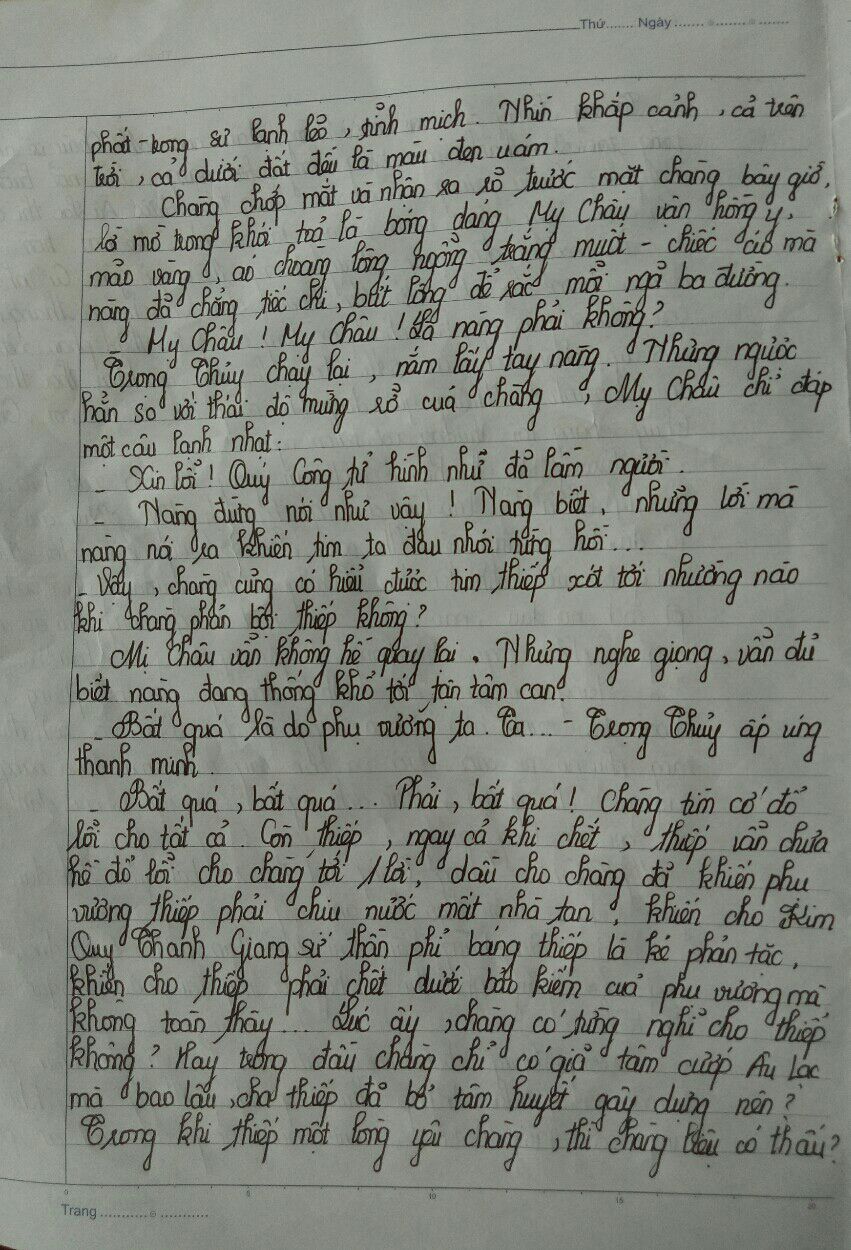 Thứ....... Ngày ....... ....... .......
phất trong sự lạnh lẽo, tĩnh mịch. Nhìn khắp cảnh, cả trên
trời, cả dưới đất đều là màu đen uám.
Chàng chớp mắt và nhận ra rõ trước mắt chàng bây giờ,
lờ mờ trong khói toả là bóng dáng Mỵ Châu vận hồng y,
mão vàng, áo choàng lông ngỗng trắng muốt - chiếc áo mà
nàng đã chẳng tiếc chi, bứt lông để rắc mỗi ngả ba đường.
- Mỵ Châu! Mỵ Châu! Là nàng phải không?
Trọng Thủy chạy lại, nắm lấy tay nàng. Nhưng ngược
hẳn so với thái độ mừng rỡ cuả chàng, Mỵ Châu chỉ đáp
một câu lạnh nhạt:
- Xin lỗi! Quý Công tử hình như đã lầm người.
- Nàng đừng nói như vậy! Nàng biết, những lời mà
nàng nói ra khiến tim ta đau nhói từng hồi...
- Vậy, chàng cũng có hiểu được tim thiếp xót tới nhường nào
khi chàng phản bội thiếp không?
Mị Châu vẫn không hề quay lại. Nhưng nghe giọng, vẫn đủ
biết nàng đang thống khổ tới tận tâm can.
- Bất quá là do phụ vương ta. Ta... - Trọng Thủy ấp úng
thanh minh.
- Bất quá, bất quá... Phải, bất quá! Chàng tìm cớ đổ
lỗi cho tất cả. Còn thiếp, ngay cả khi chết, thiếp vẫn chưa
hề đổ lỗi cho chàng tới 1 lời, dẫu cho chàng đã khiến phụ
vương thiếp phải chịu nước mất nhà tan, khiến cho Kim
Quy Thanh Giang sứ thần phỉ báng thiếp là kẻ phản tặc,
khiến cho thiếp phải chết dưới bảo kiếm cuả phụ vương mà
không toàn thây... Lúc ấy, chàng có từng nghĩ cho thiếp
không? Hay trong đầu chàng chỉ có giả tâm cướp Âu Lạc
mà bao lâu, cha thiếp đã bỏ tâm huyết gây dựng nên?
Trong khi thiếp một lòng yêu chàng, thì chàng liệu có thấu?
0 5 10 15 20
Trang ........... ...........